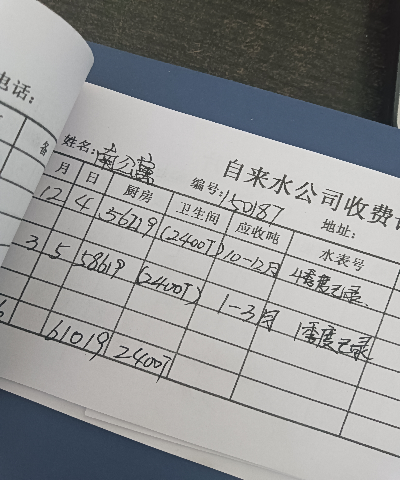 电话:
备
自来水公司收费
姓名: 南公寓 编号: 150187 地址:
月 日 厨房 卫生间 应收吨 水表号
12 4 56219 (2400T) 10-12月 4季度记录
3 5 58619 (2400T) 1-3月 1季度记录
6 61019 2400T